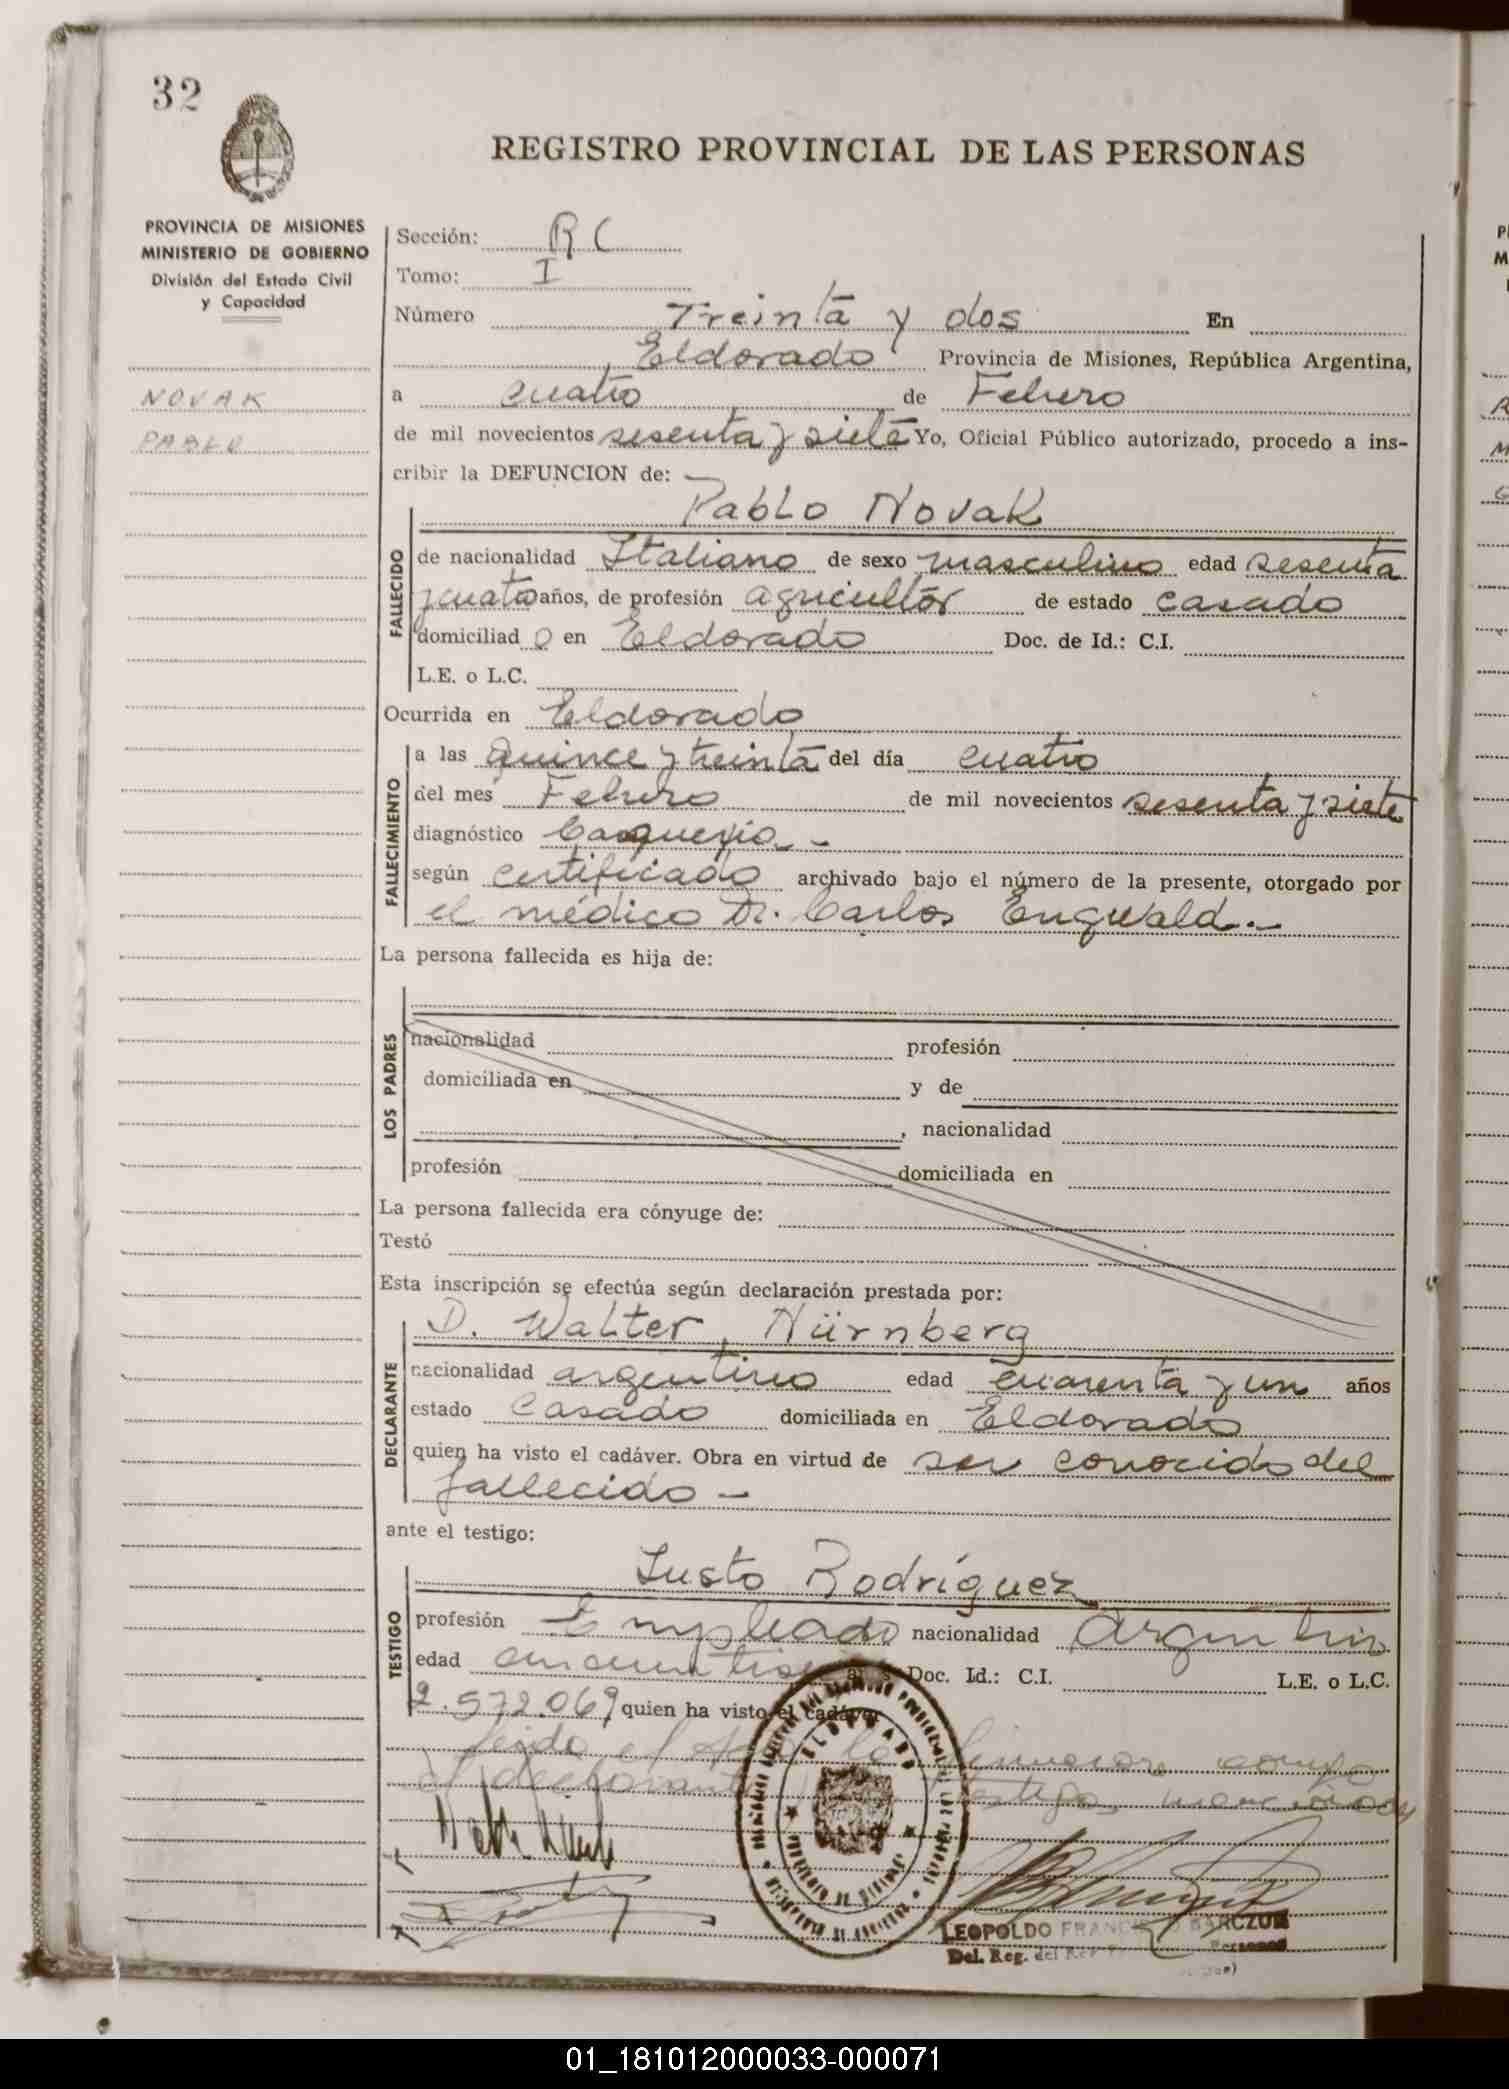 32
REGISTRO PROVINCIAL DE LAS PERSONAS
PROVINCIA DE MISIONES
MINISTERIO DE GOBIERNO
División del Estado Civil
y Capacidad
NOVAK
PABLO
Sección: R C
Tomo: I
Número Treinta y dos En
Eldorado Provincia de Misiones, República Argentina,
a cuatro de Febrero
de mil novecientos sesenta y siete Yo, Oficial Público autorizado, procedo a ins-
cribir la DEFUNCION de:
Pablo Novak
FALLECIDO
de nacionalidad Italiano de sexo masculino edad sesenta
y cuatro años, de profesión agricultor de estado casado
domiciliad o en Eldorado Doc. de Id.: C.I.
L.E. o L.C.
Ocurrida en Eldorado
FALLECIMIENTO
a las quince y treinta del día cuatro
del mes Febrero de mil novecientos sesenta y siete
diagnóstico Caquexia.-
según certificado archivado bajo el número de la presente, otorgado por
el médico Dr. Carlos Engwald.-
La persona fallecida es hija de:
LOS PADRES
nacionalidad profesión
domiciliada en y de
, nacionalidad
profesión domiciliada en
La persona fallecida era cónyuge de:
Testó
Esta inscripción se efectúa según declaración prestada por:
D. Walter Nürnberg
DECLARANTE
nacionalidad argentino edad cuarenta y un años
estado Casado domiciliada en Eldorado
quien ha visto el cadáver. Obra en virtud de ser conocido del
fallecido -
ante el testigo:
Justo Rodríguez
TESTIGO
profesión Empleado nacionalidad Argentino
edad años Doc. Id.: C.I. L.E. o L.C.
2.572.069 quien ha visto el cadáver
leida el Acta la firmaron conmigo
el declarante testigo mencionados
ELDORADO
LEOPOLDO FRANCISCO BARCZUK
Del. Reg. del Reg. Personas
01_181012000033-000071